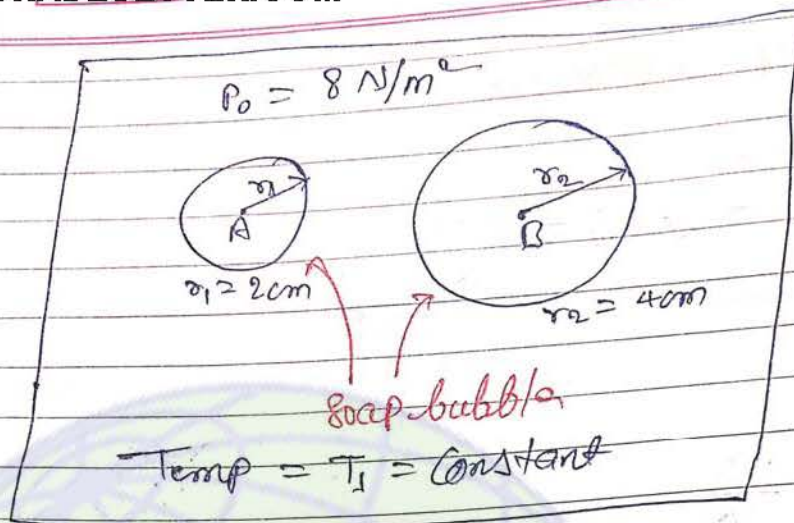 P₀ = 8 N/m²
r₁
r₂
A
B
r₁ = 2cm
r₂ = 4cm
soap bubble
Temp = T₁ = Constant